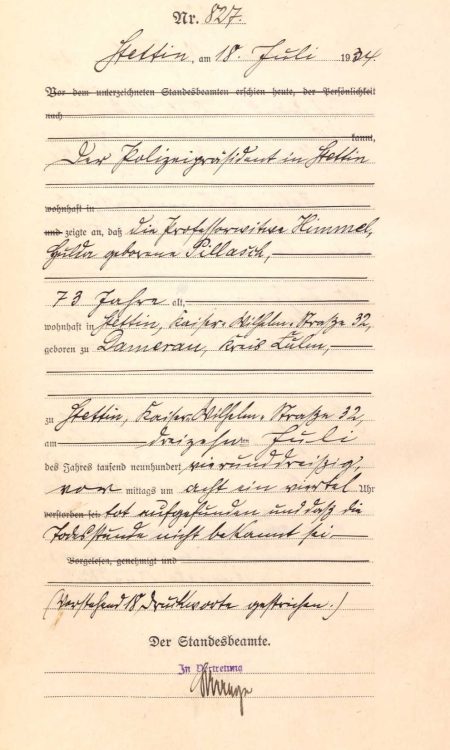 Nr. 827.
Stettin, am 18. Juli 1934.
Vor dem unterzeichneten Standesbeamten erschien heute, der Persönlichkeit
nach
kannt,
Der Polizeipräsident in Stettin
wohnhaft in
und zeigte an, daß die Professorwitwe Himmel,
Hulda geborene Pillasch,
73 Jahre alt,
wohnhaft in Stettin, Kaiser-Wilhelm-Straße 32,
geboren zu Damerau, Kreis Culm,
zu Stettin, Kaiser-Wilhelm-Straße 32,
am dreizehn Juli
des Jahres tausend neunhundert vierunddreißig,
vor mittags um acht ein viertel Uhr
verstorben sei: tot aufgefunden und daß die
Todesstunde nicht bekannt sei.
Vorgelesen, genehmigt und
(Vorstehend 18 Druckworte gestrichen.)
Der Standesbeamte.
In Vertretung